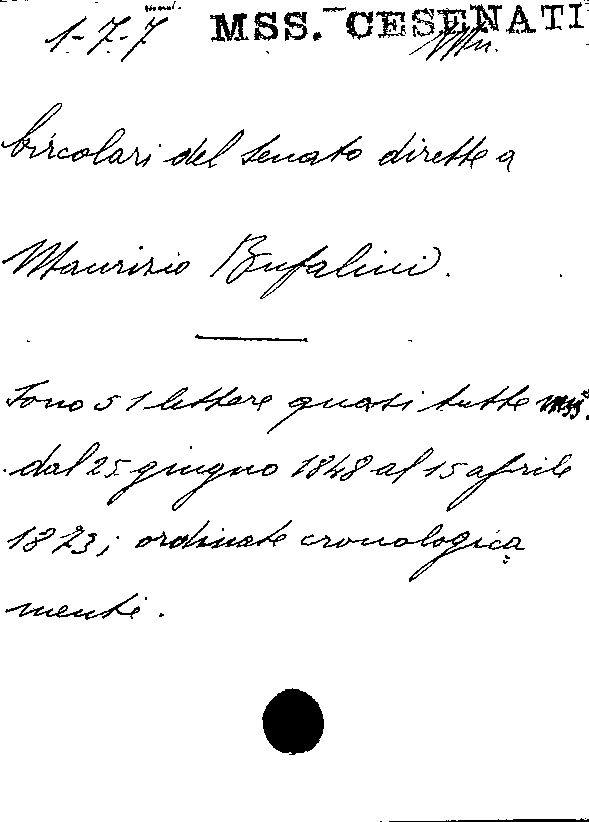 1-7-7 MSS. CESENATI
Circolari del Senato dirette a
Maurizio Bufalini.
Sono 51 lettere quasi tutte mss.
dal 25 giugno 1848 al 15 aprile
1873; ordinate cronologica
mente.